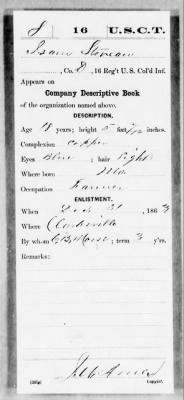 S 16 U.S.C.T.
Isam
, Co. D, 16 Reg't U. S. Col'd Inf.
Appears on
Company Descriptive Book
of the organization named above.
DESCRIPTION.
Age 18 years; height 5 feet inches.
Complexion copper
Eyes Blue; hair light
Where born
Occupation Farmer
ENLISTMENT.
When Dec 21, 1863
Where Clarksville
By whom; term 3 y'rs.
Remarks:
Copyist.